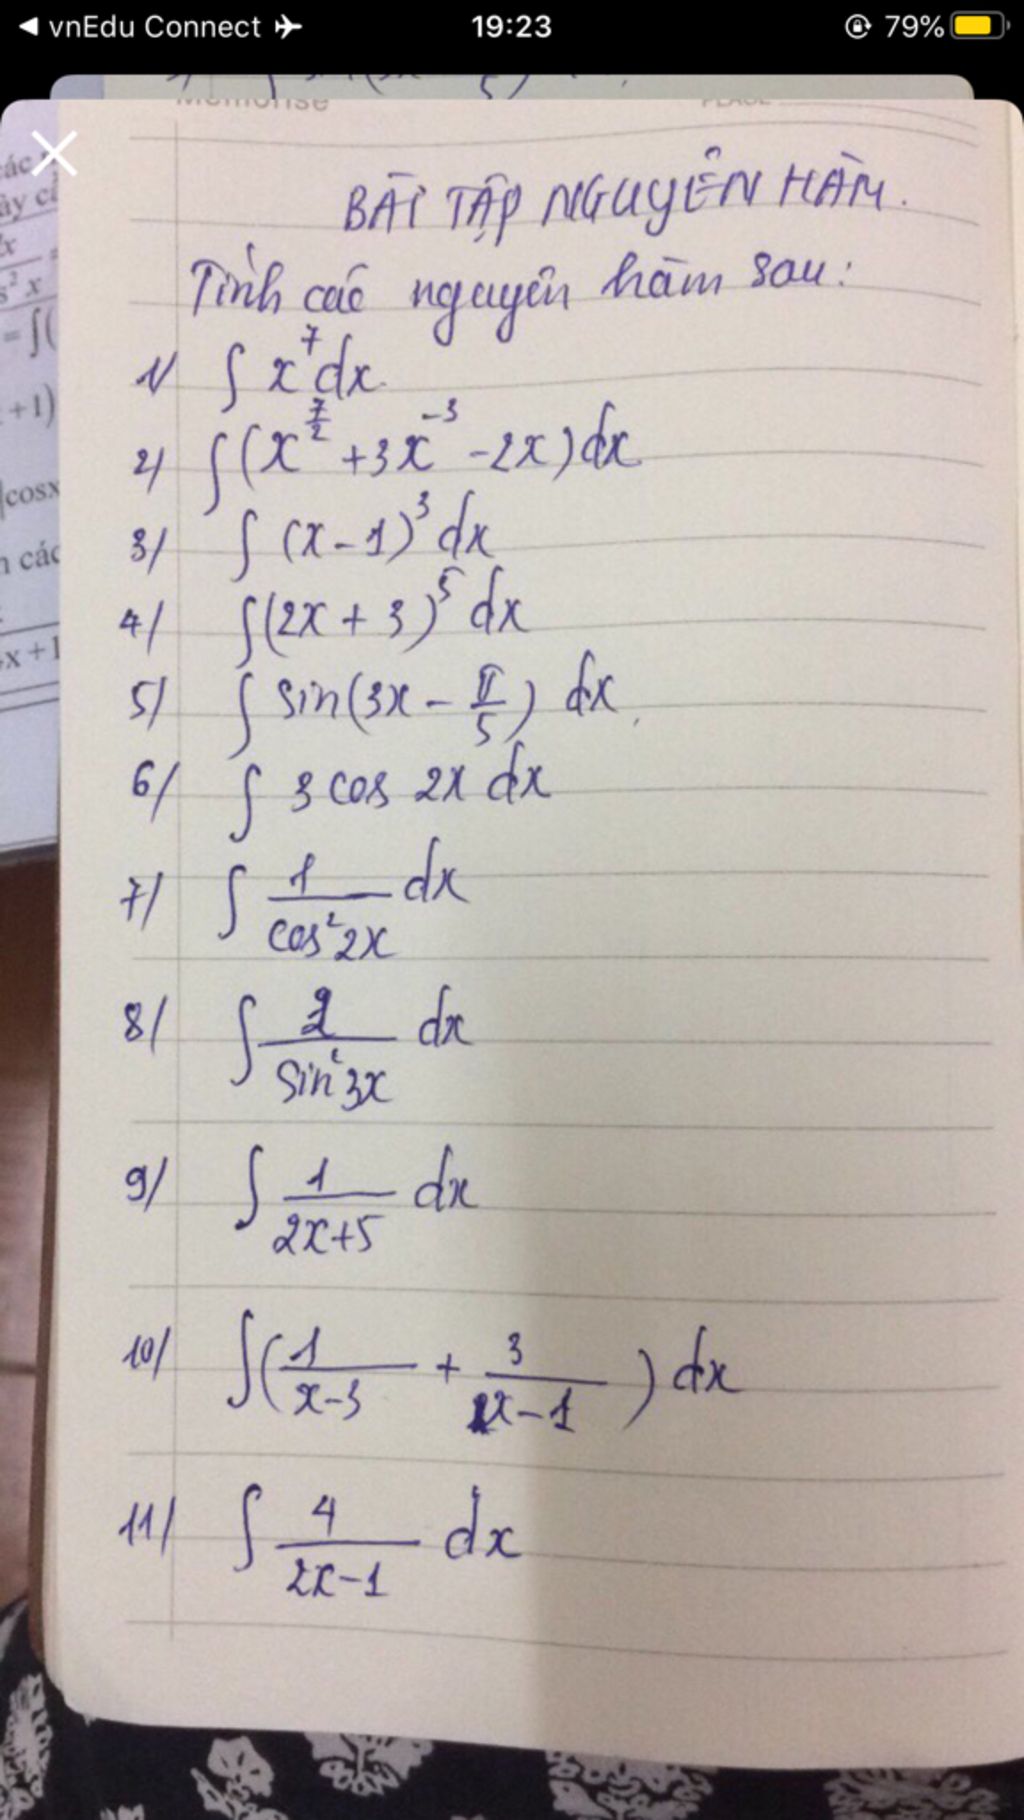 vnEdu Connect
19:23
79%
Memorise
PLACE
BÀI TẬP NGUYÊN HÀM.
Tính các nguyên hàm sau:
1/ ∫ x^7 dx
2/ ∫ (x^(7/2) + 3x^-3 - 2x) dx
3/ ∫ (x - 1)^3 dx
4/ ∫ (2x + 3)^5 dx
5/ ∫ sin(3x - π/5) dx
6/ ∫ 3 cos 2x dx
7/ ∫ 1/(cos² 2x) dx
8/ ∫ 2/(sin² 3x) dx
9/ ∫ 1/(2x+5) dx
10/ ∫ (1/(x-3) + 3/(x-1)) dx
11/ ∫ 4/(2x-1) dx
+1)
cosx
các
x+1